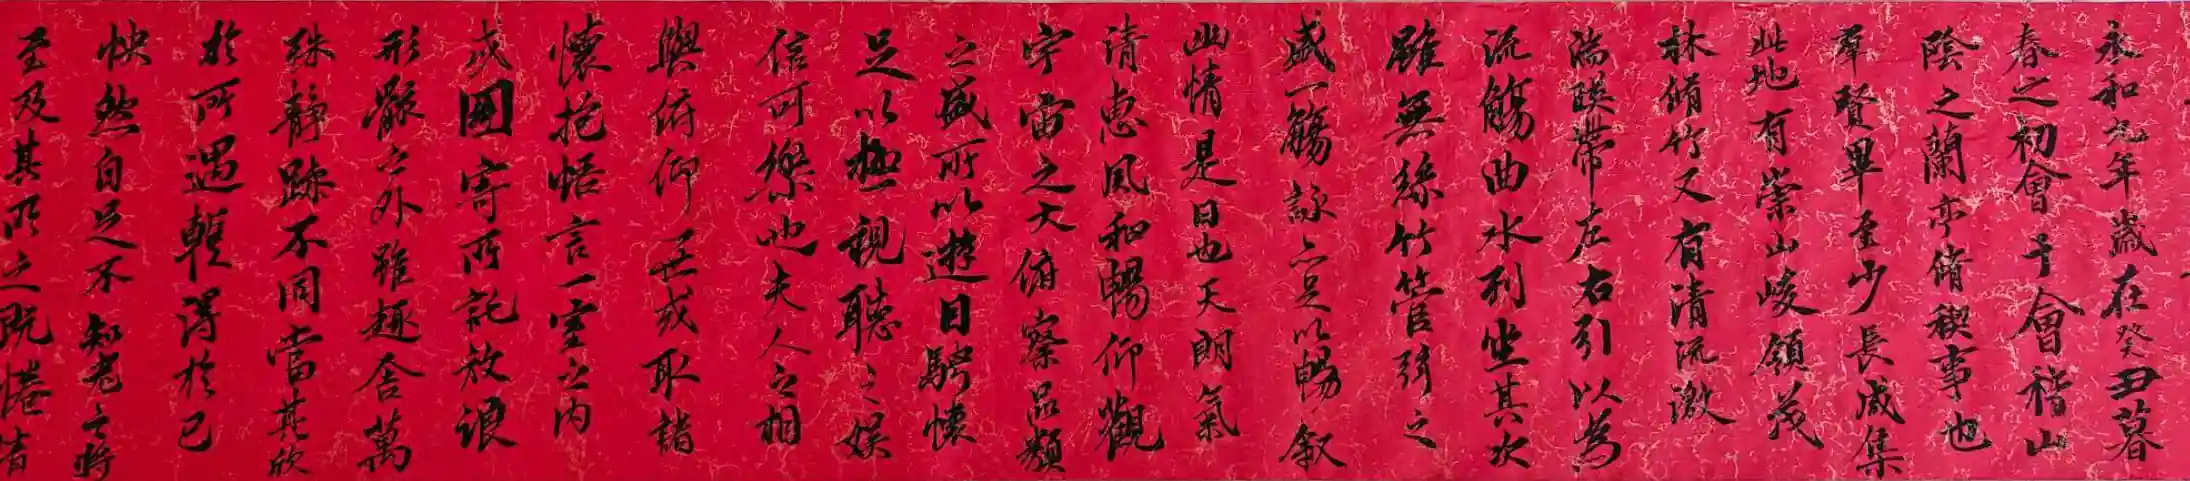 永和九年歲在癸丑暮
春之初會于會稽山
陰之蘭亭脩禊事也
羣賢畢至少長咸集
此地有崇山峻領茂
林脩竹又有清流激
湍暎帶左右引以為
流觴曲水列坐其次
雖無絲竹管弦之
盛一觴詠亦足以暢叙
幽情是日也天朗氣
清惠風和暢仰觀
宇宙之大俯察品類
之盛所以遊目騁懷
足以極視聽之娱
信可樂也夫人之相
與俯仰一世或取諸
懷抱悟言一室之内
或因寄所託放浪
形骸之外雖趣舍萬
殊静躁不同當其欣
於所遇暫得於己
怏然自足不知老之將
至及其所之既惓情